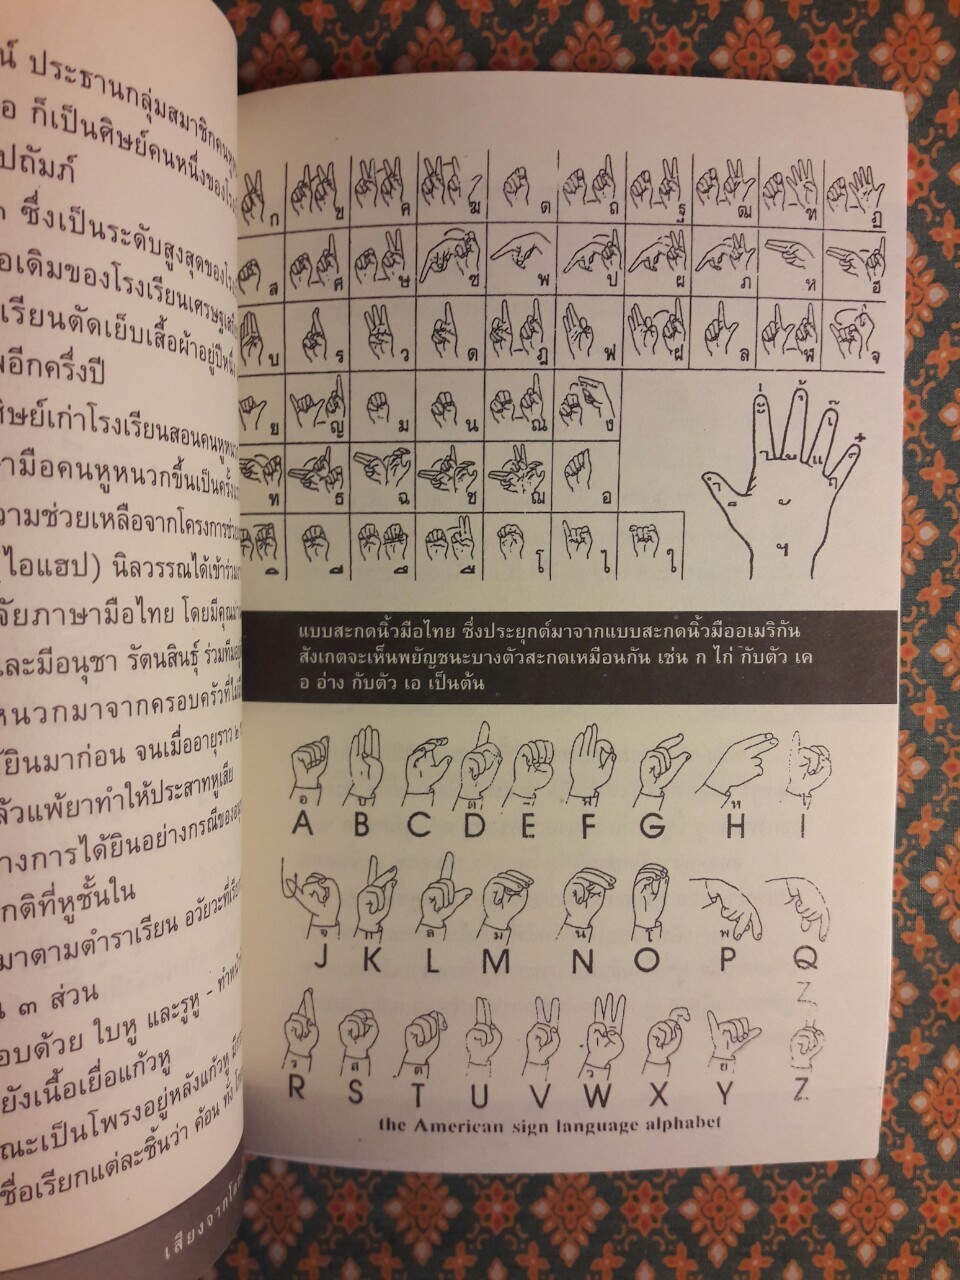 น์ ประธานกลุ่มสมาชิกคนหู
อ ก็เป็นศิษย์คนหนึ่งของโรง
ปถัมภ์
๓ ซึ่งเป็นระดับสูงสุดของโรง
อเดิมของโรงเรียนเศรษฐเสถียร
เรียนตัดเย็บเสื้อผ้าอยู่ปีหนึ่ง
พอีกครึ่งปี
ศิษย์เก่าโรงเรียนสอนคนหูหนวก
ามือคนหูหนวกขึ้นเป็นครั้งแรก
วามช่วยเหลือจากโครงการ
ไอแฮป) นิลวรรณได้เข้าร่วม
จัยภาษามือไทย โดยมีคุณ
ละมีอนุชา รัตนสินธุ์ ร่วมทีม
หนวกมาจากครอบครัวที่ไม่มี
ยินมาก่อน จนเมื่ออายุราว ๒
ล้วแพ้ยาทำให้ประสาทหูเสีย
างการได้ยินอย่างกรณีของ
กติที่หูชั้นใน
มาตามตำราเรียน อวัยวะที่เรียก
น ๓ ส่วน
อบด้วย ใบหู และรูหู - ทำหน้า
ยังเนื้อเยื่อแก้วหู
ณะเป็นโพรงอยู่หลังแก้วหู มีกระ
ชื่อเรียกแต่ละชิ้นว่า ค้อน ทั่ง โกล
เสียงจากโลก
ก ข ค ฆ ต ถ ฐ ฒ ฑ ฏ
ส ศ ษ ซ พ ป ผ ภ ห ฮ
บ ร ว ด ฎ ฟ ฝ ล ฬ จ
ย ญ ม น ณ ง
ท ธ ฉ ช ฌ อ
โ ไ ใ
ฯ
แบบสะกดนิ้วมือไทย ซึ่งประยุกต์มาจากแบบสะกดนิ้วมืออเมริกัน
สังเกตจะเห็นพยัญชนะบางตัวสะกดเหมือนกัน เช่น ก ไก่ กับตัว เค
อ อ่าง กับตัว เอ เป็นต้น
อ บ ด ฟ ห
A B C D E F G H I
จ ก ล ม น โ พ
J K L M N O P Q
Z
ร ส ต ว ย
R S T U V W X Y Z
the American sign language alphabet